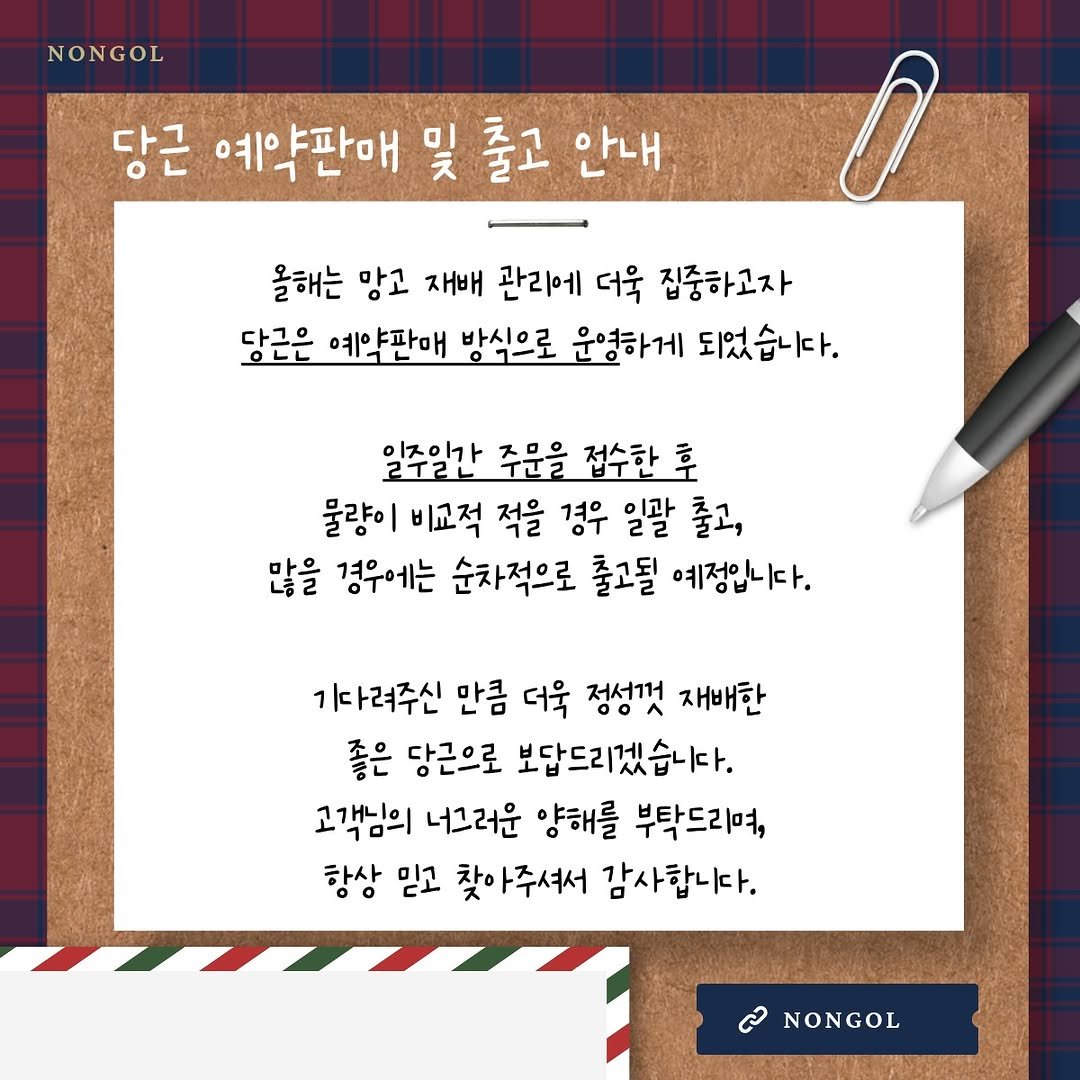 NONGOL
당근 예약판매 및 출고 안내
올해는 망고 재배 관리에 더욱 집중하고자
당근은 예약판매 방식으로 운영하게 되었습니다.
일주일간 주문을 접수한 후
물량이 비교적 적을 경우 일괄 출고,
많을 경우에는 순차적으로 출고될 예정입니다.
기다려주신 만큼 더욱 정성껏 재배한
좋은 당근으로 보답드리겠습니다.
고객님의 너그러운 양해를 부탁드리며,
항상 믿고 찾아주셔서 감사합니다.
NONGOL